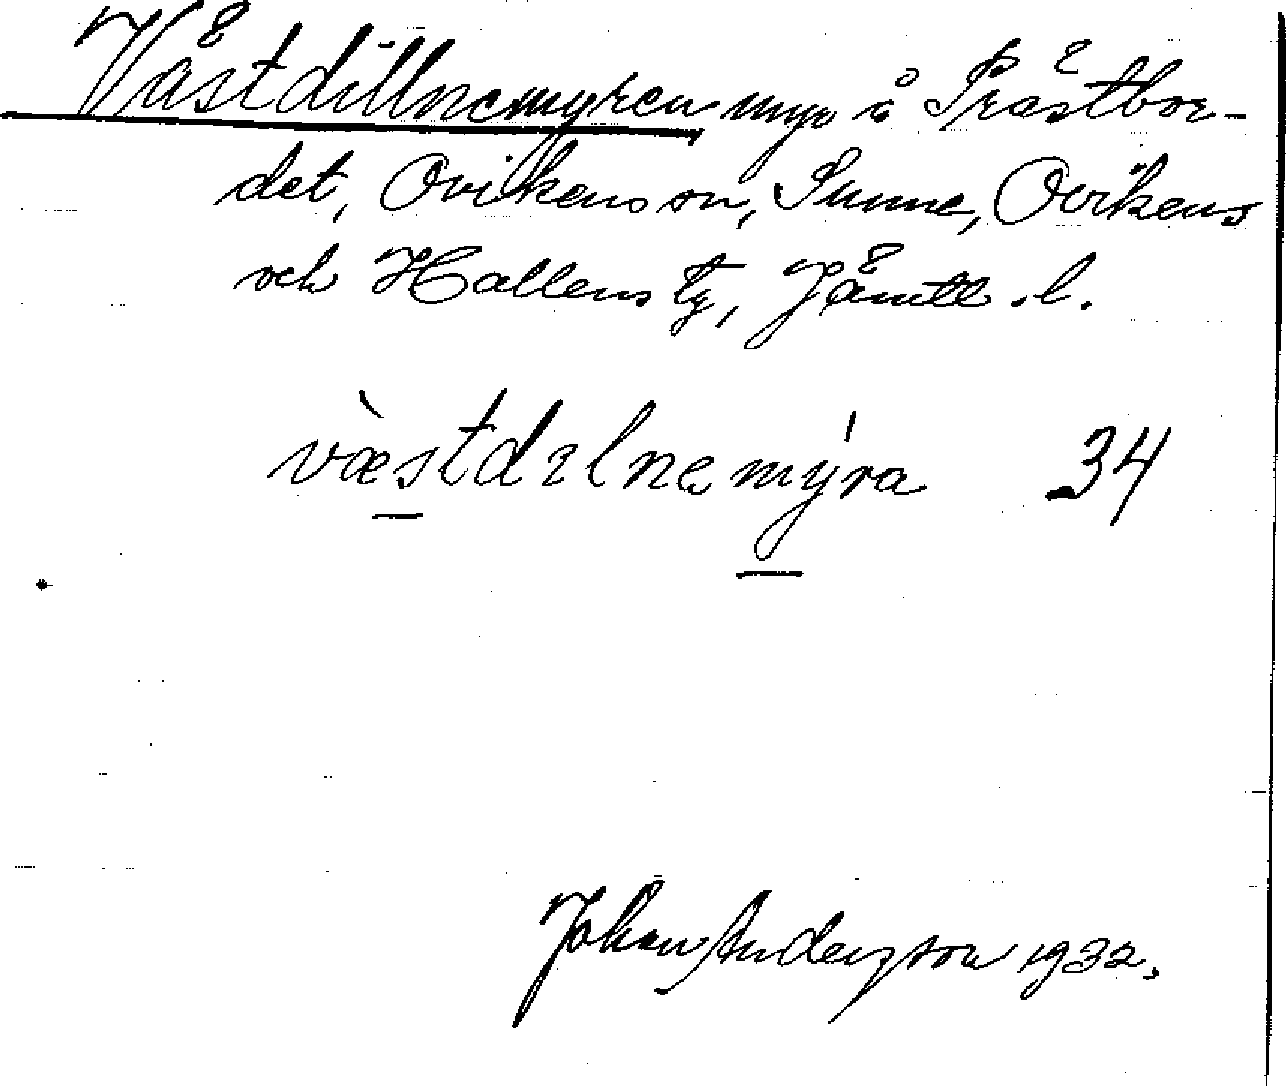 Västdillnemyren myr å Prästbor-
det, Ovikens sn, Sunne, Ovikens
och Hallens tg, Jämtl. l.
væ̀stdɪlnemýra 34
Johan Anderzson 1932.